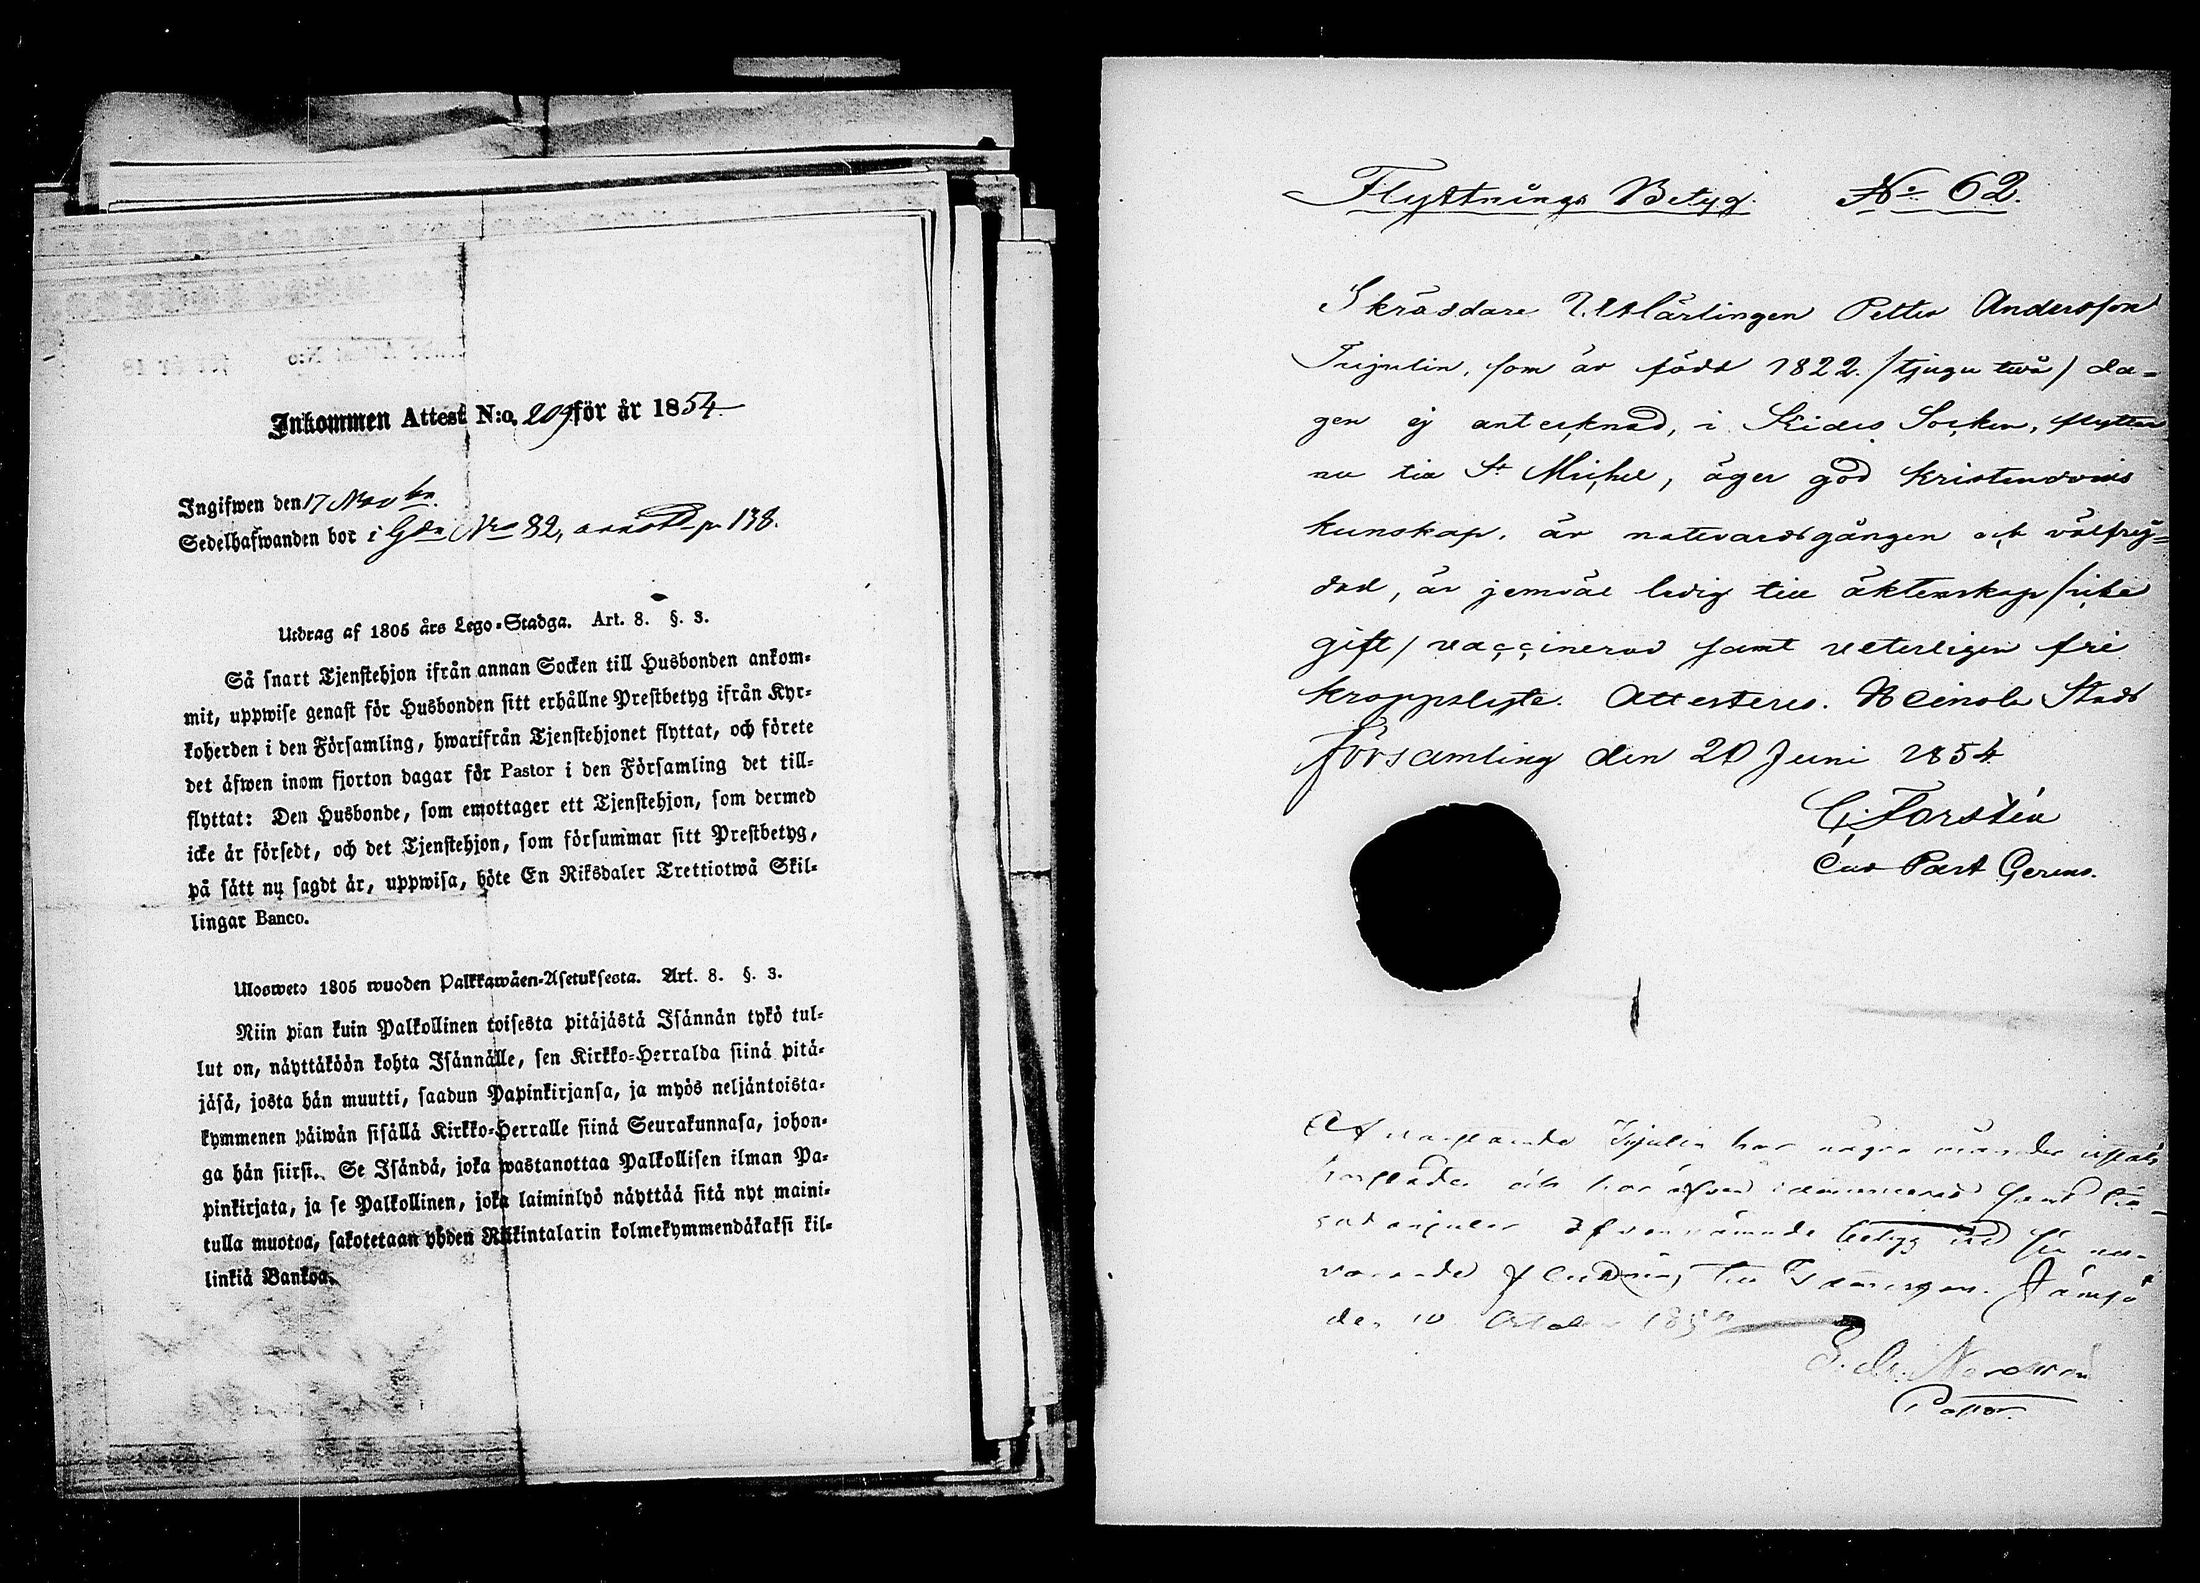 Inkommen Attest N:o 209 för år 1854
Ingifwen den 17 Novbr.
Sedelhafwanden bor i Gdn Nro 82, annot. p. 138.
Utdrag af 1805 års Lego-Stadga. Art. 8. §. 3.
Så snart Tjenstehjon ifrån annan Socken till Husbonden ankom-
mit, uppwise genast för Husbonden sitt erhållne Prestbetyg ifrån Kyr-
koherden i den Församling, hwarifrån Tjenstehjonet flyttat, och förete
det äfwen inom fjorton dagar för Pastor i den Församling det till-
flyttat: Den Husbonde, som emottager ett Tjenstehjon, som dermed
icke är försedt, och det Tjenstehjon, som försummar sitt Prestbetyg,
på sätt nu sagdt är, uppwisa, böte En Riksdaler Trettiotwå Skil-
lingar Banco.
Ulosweto 1805 wuoden Palkkawäen-Asetuksesta. Art. 8. §. 3.
Niin pian kuin Palkollinen toisesta pitäjästä Isännän tykö tul-
lut on, näyttäköön kohta Isännälle, sen Kirkko-Herralda siinä pitä-
jäsä, josta hän muutti, saadun Papinkirjansa, ja myös neljäntoista-
kymmenen päiwän sisällä Kirkko-Herralle siinä Seurakunnasa, johon-
ga hän siirsi. Se Isändä, joka wastanottaa Palkollisen ilman Pa-
pinkirjata, ja se Palkollinen, joka laiminlyö näyttää sitä nyt maini-
tulla muotoa, sakotetaan yhden Riikintalarin kolmekymmendäkaksi kil-
linkiä Bankoa.
Flyttnings Betyg. No 62.
Skräddare Utlärlingen Petter Andersson
Tujulin, som är född 1822 /tjugu två/ da-
gen ej antecknad, i Kides Socken, flyttar
nu till St Michel, äger god kristendoms
kunskap, är nattvardsgången och välfrej-
dad, är jemväl ledig till äktenskap /icke
gift/ vaccinerad samt veterligen fri
kroppslyte. Attesteras. Heinola Stads
församling den 20 Juni 1854
C. Forstén
Cur Past Gerens.
har några månader
har äfven samt
betyg vid sin nu-
varande flyttning till Jämsä
den 10 October 1854
Pastor.